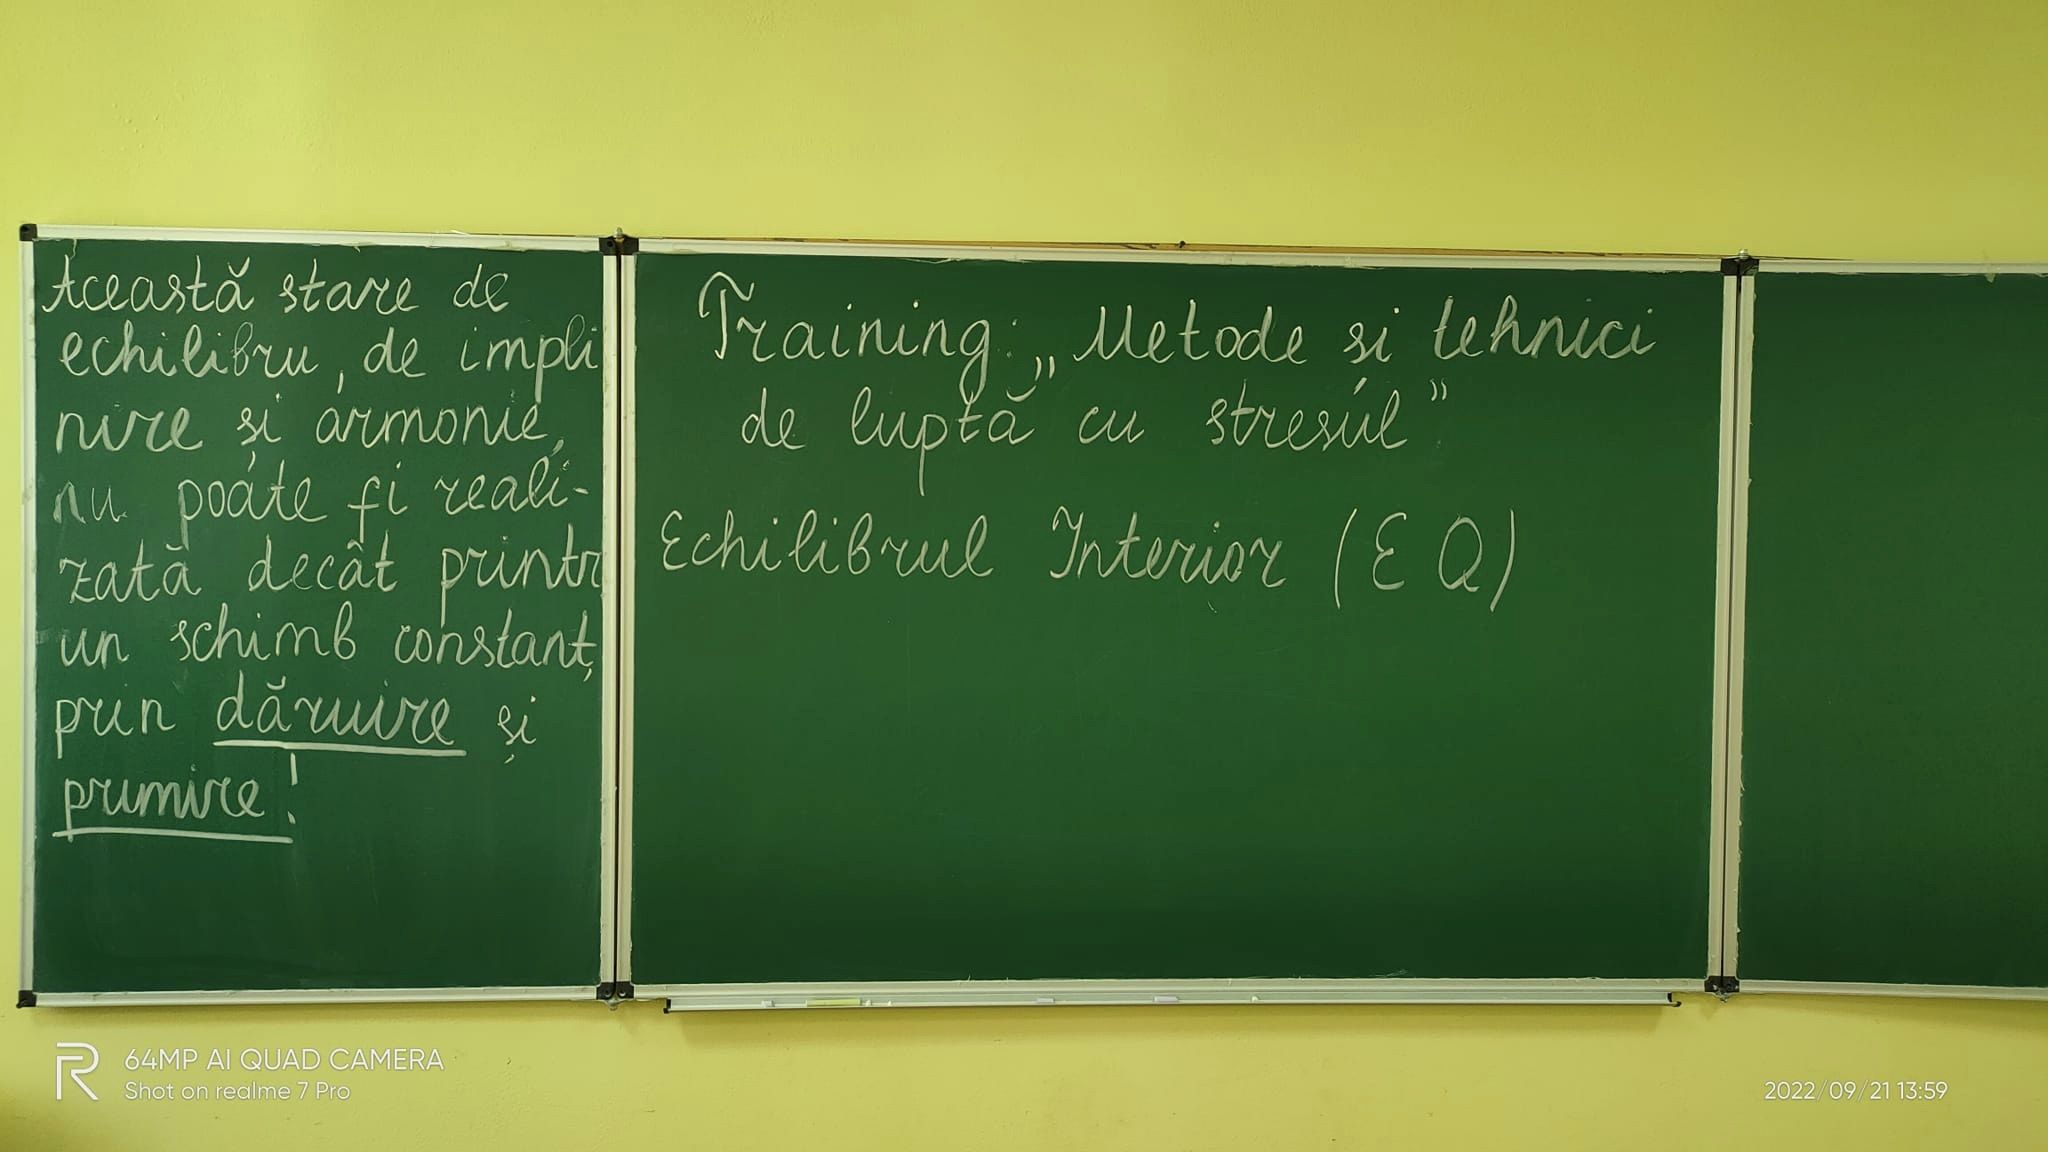 Această stare de
echilibru, de impli
nire si armonie,
nu poate fi reali-
zată decât printr
un schimb constant,
prin dăruire și
primire!
Training: „Metode si tehnici
de luptă cu stresul”
Echilibrul Interior (EQ)
64MP AI QUAD CAMERA
Shot on realme 7 Pro
2022/09/21 13:59